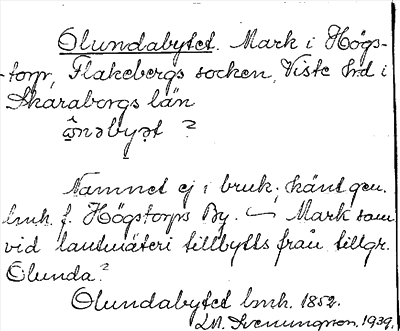 Olundabytet. Mark i Högs-
torp, Flakebergs socken, Viste hrd i
Skaraborgs län
?
Namnet ej i bruk; känt gen.
lmh. f. Högstorps By. Mark som
vid lantmäteri tillbytts från tillgr.
Olunda?
Olundabytet lmh. 1852.
Svenungson. 1939.